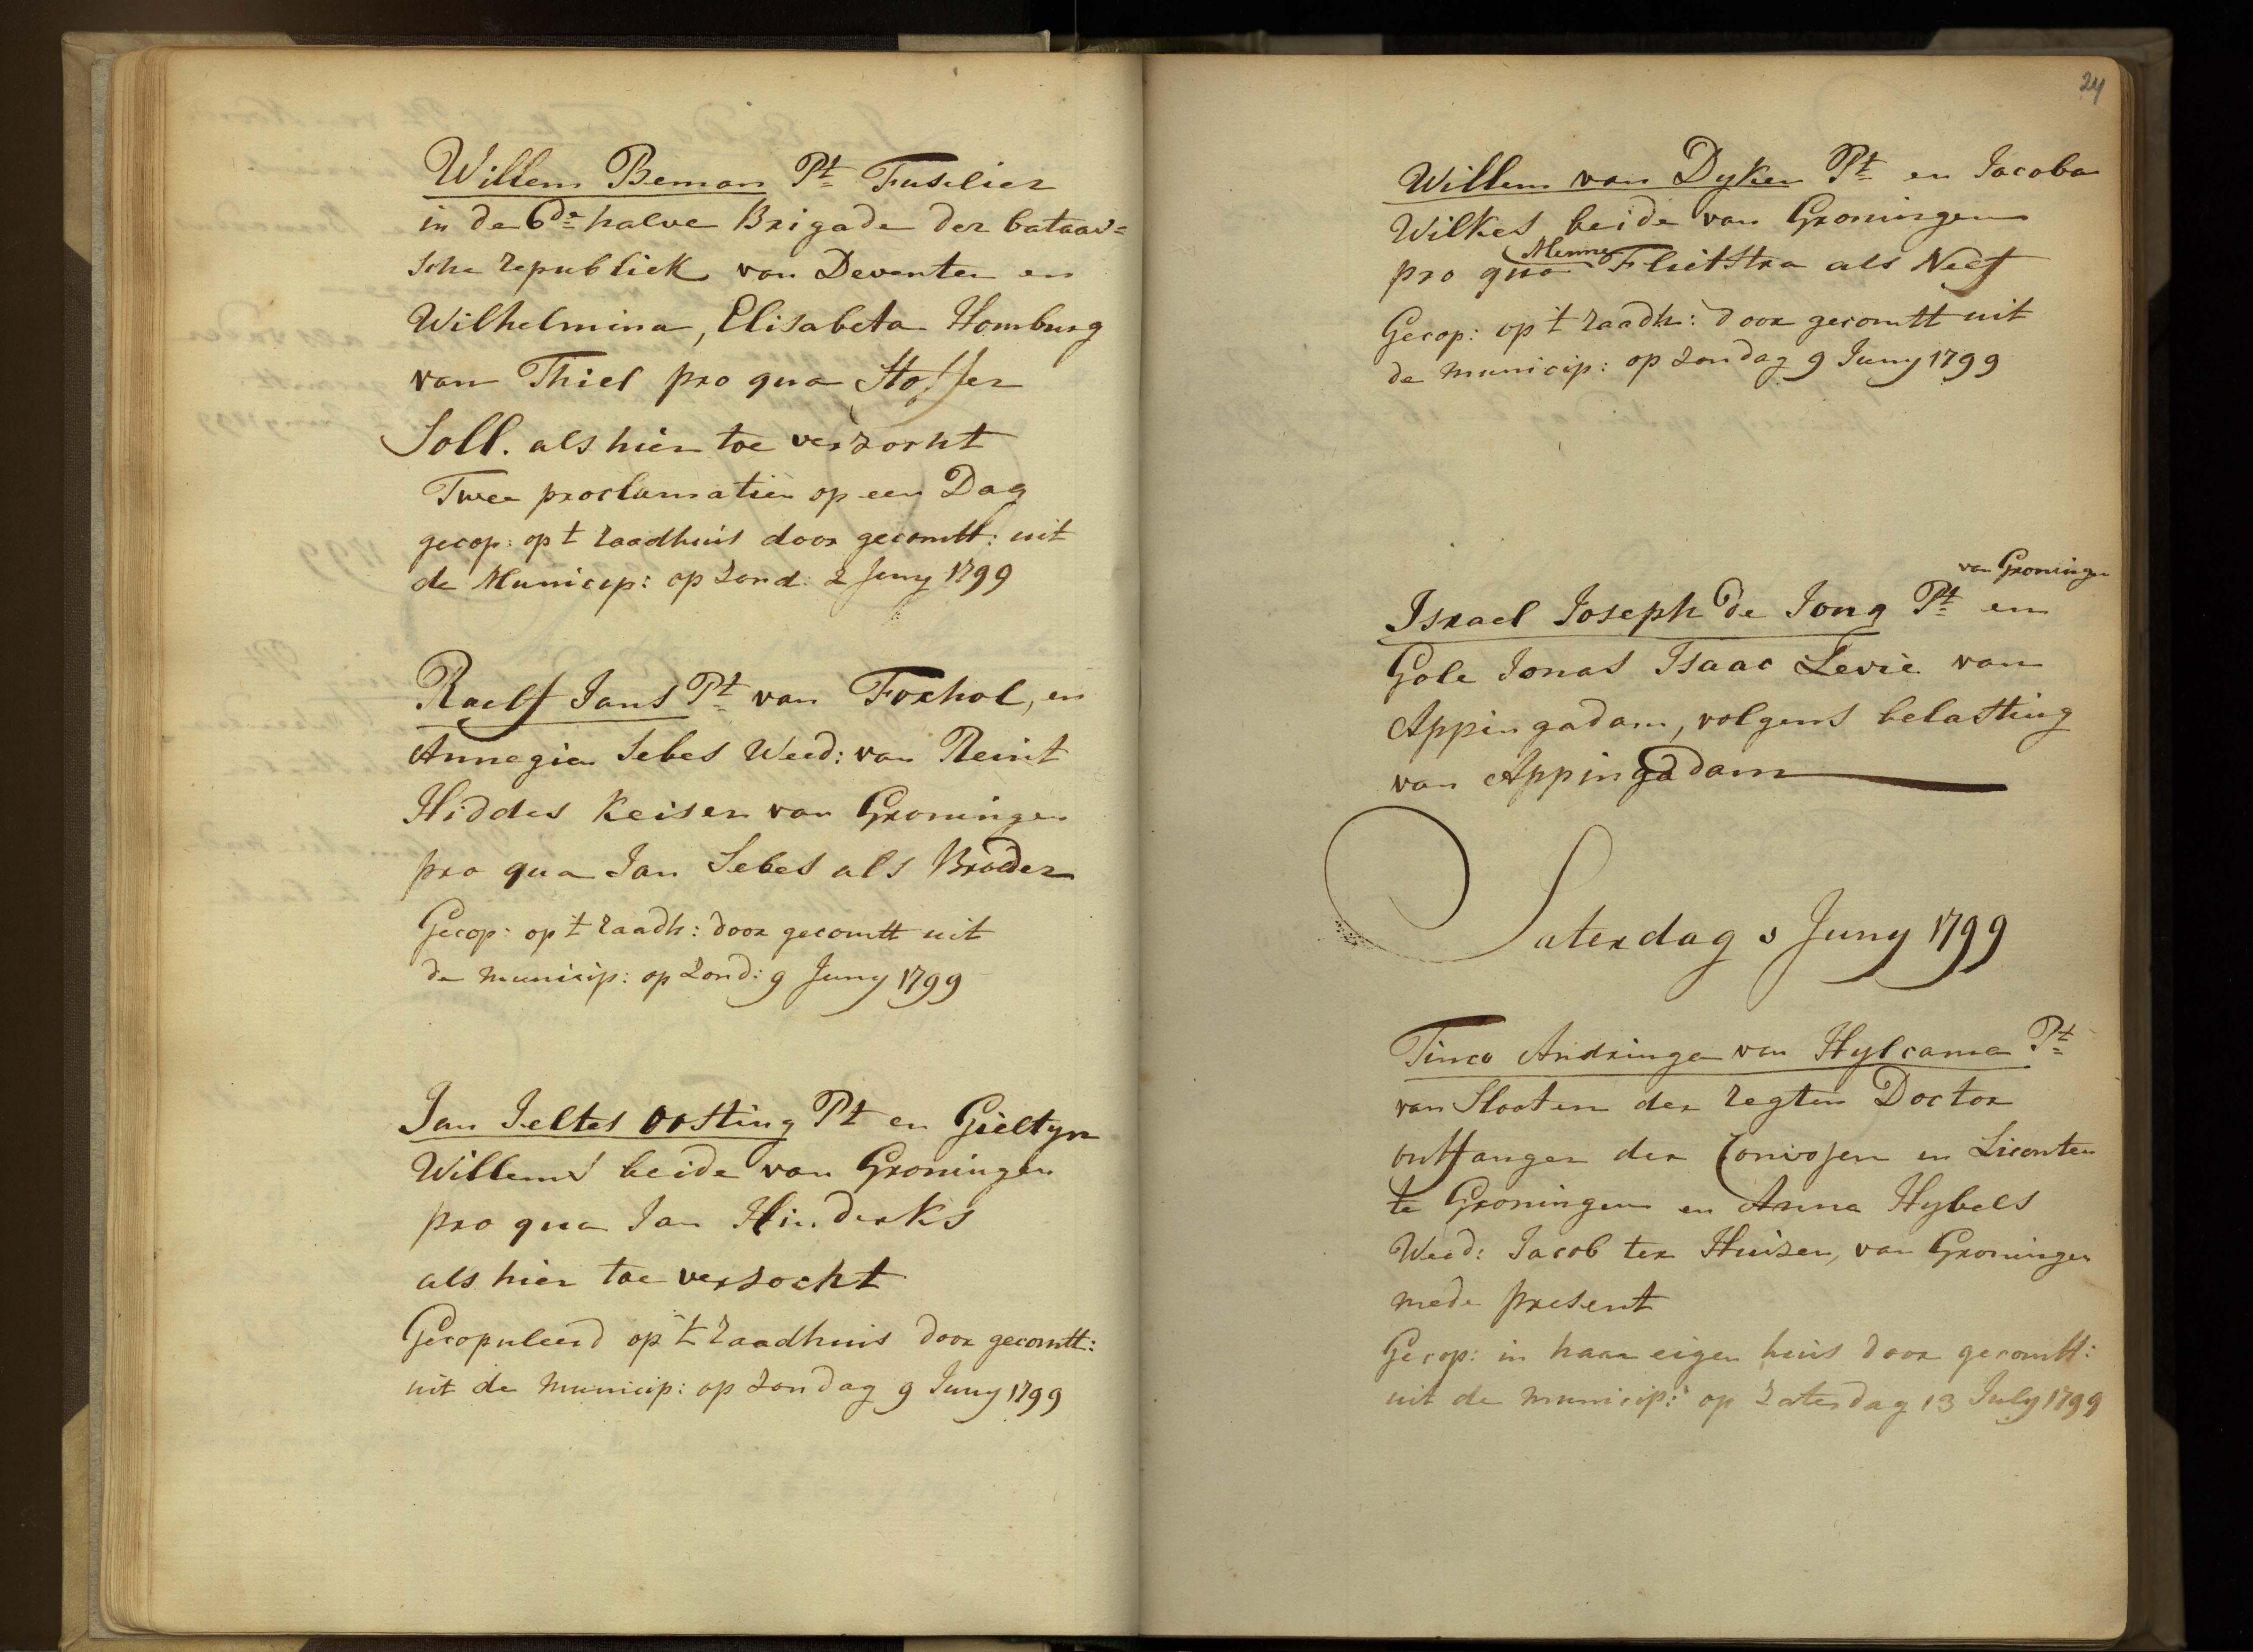 Willem Beman Pt Fuselier
in de 6de halve Brigade der bataav=
sche republiek van Deventer en
Wilhelmina, Elisabeta Homburg
van Thiel pro qua Stoffer
Soll. als hier toe verzocht
Twee proclamatien op een Dag
gecop: op t raadhuis door gecomtt: uit
de Municip: op Zond: 2 Juny 1799
Raelf Jans Pt van Foxhol, en
Annegien Sebes Weed: van Reint
Hiddes Keiser van Groningen
pro qua Jan Sebes als Broeder
Gecop: op t raadh: door gecomtt uit
de municip: op Zond: 9 Juny 1799
Jan Jeltes Oosting Pt en Gieltyn
Willems beide van Groningen
pro qua Jan Hinderks
als hier toe verzocht
Gecopuleerd op 't raadhuis door gecomtt:
uit de municip: op zondag 9 Juny 1799
24
Willem van Dyken Pt en Jacoba
Wilkes beide van Groningen
pro qua Menne Flietstra als Neef
Gecop: op t raadh: door gecomtt uit
de municip: op zondag 9 Juny 1799
van Groningen
Israel Joseph de Jong Pt en
Gole Jonas Isaac Levie van
Appingadam, volgens belasting
van Appingadam
Saterdag Juny 1799
Tinco Andringa van Hylcama Pt
van Slooten der regten Doctor
ontfanger der Convojen en Licenten
te Groningen en Anna Hybels
Weed: Jacob ter Huizen, van Groningen
mede present
Gecop: in haar eigen huis door gecomtt:
uit de municip: op zaterdag 13 July 1799